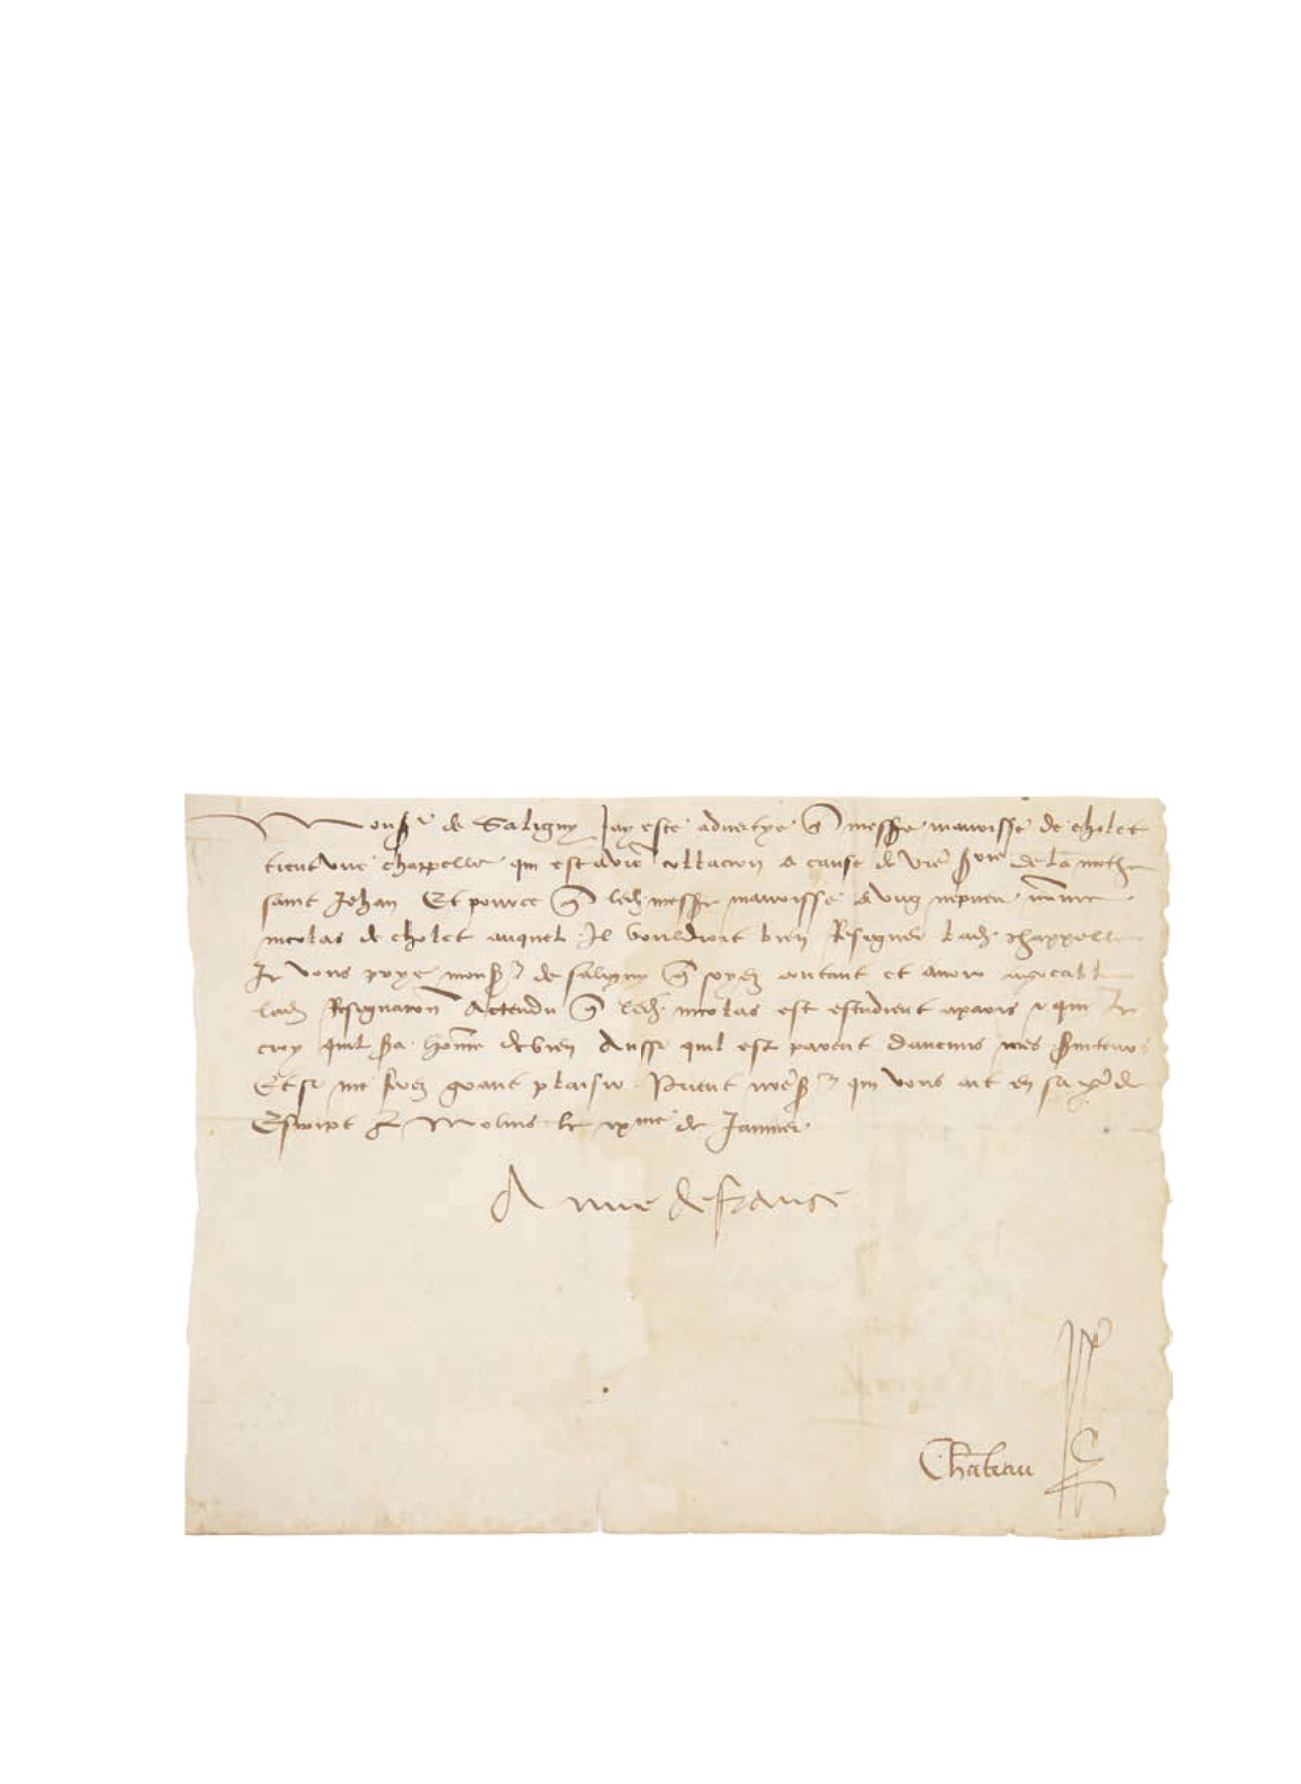 Monsr de Saligny Jay este advertye q messe mauvoisse de cholet
tient une chappelle qui est a vre collacion a cause de vre srie de la mothe
saint Jehan Et pource q led messe mauvoisse a ung nepveu nomme
nicolas de cholet auquel Il vouldroit bien Resigner lad chappelle
Je vous prye monsr de saligny q soyez contant et avoir agreable
lad Resignacion Actendu q led nicolas est estudient a paris et qui Je
croy quil sera homme de bien Aussi quil est parent daucuns mes serviteurs
Et se me ferez grant plaisir Priant nresr qui vous ait en sa garde
Escript a Molins le ixme de Janvier
Anne de france
Chateau